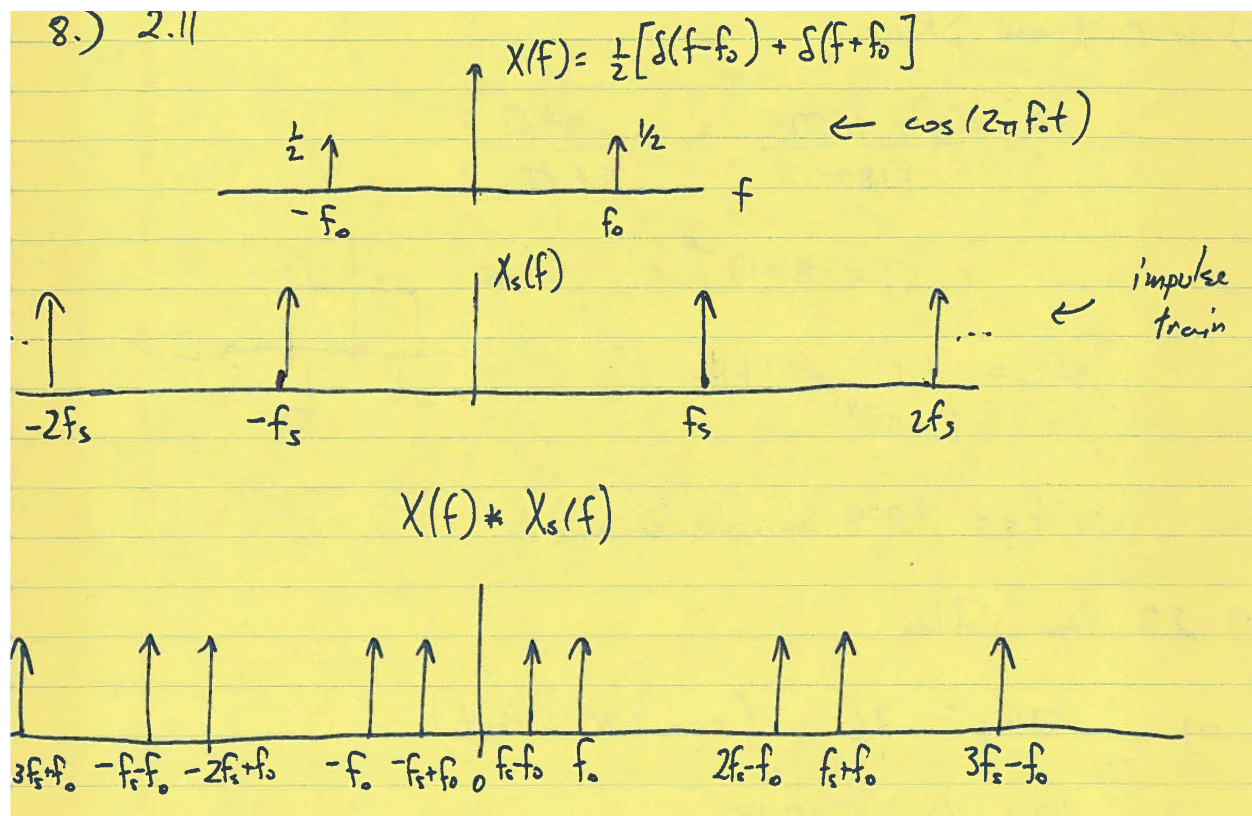 8.) 2.11
X(f) = 1/2 [δ(f-f₀) + δ(f+f₀]
← cos(2πf₀t)
1/2 1/2
-f₀ f₀ f
Xₛ(f)
← impulse
train
... ...
-2fₛ -fₛ fₛ 2fₛ
X(f) * Xₛ(f)
3fₛ+f₀ -fₛ-f₀ -2fₛ+f₀ -f₀ -fₛ+f₀ 0 fₛ-f₀ f₀ 2fₛ-f₀ fₛ+f₀ 3fₛ-f₀